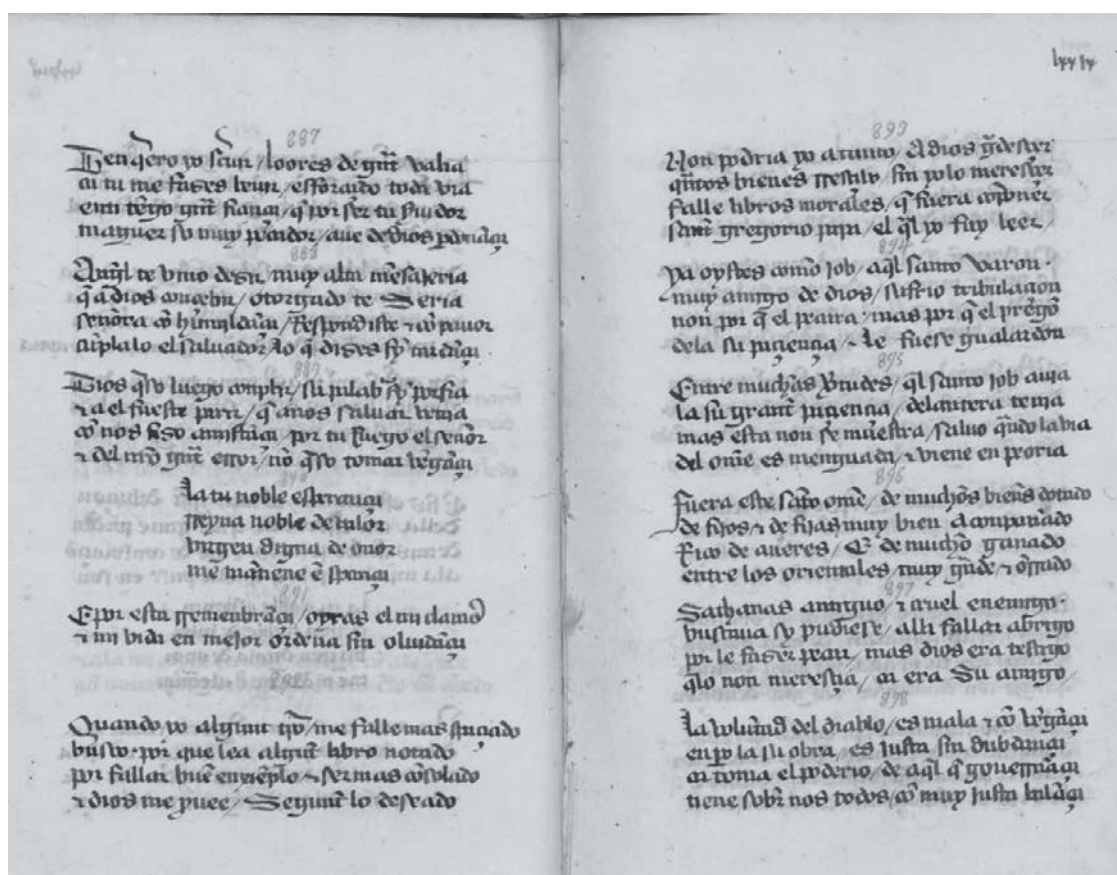 887
Señora yo seruir / loores de grãt valia
ca tu me fases leuar / esforçando toda via
en ti tẽgo grãt fiança / q̃ por ser tu seruidor
maguer so muy pecador / aue de dios perdonãça
888
Angel te vino desir / muy alta mẽsajeria
q̃ a dios conçebir / otorgado te Seria
señora cõ hũmildãça / Respondiste τ cõ pauor
cũplalo el saluador / lo q̃ dises sỹ tardãça
889
Dios q̃so luego conplir / su palabra sỹ porfia
τ a el fueste parir / q̃ a nos saluar venia
cõ nos fiso amistãça / por tu Ruego el señor
τ del mũdo grãt error / nõ q̃so tomar vẽgãça
890
A la tu noble esperança
rreyna noble de valor
virgen digna de onor
me mãtiene ẽ esperança
891
E por esta rremenbrãça / oyras el mi clamor
τ mi vida en mejor / ordena sin oluidãça
892
Quando yo algunt tpõ / me falle mas spaçiado
busco por que lea algunt libro notado
por fallar buẽ enxenplo τ ser mas cõsolado
τ dios me puee / Segunt lo deseado
lxxix
893
Non podria yo a tanto / A dios gradesçer
q̃ntos bienes rresçibo / sin yo lo meresçer
falle libros morales / q̃ fuera conponer
sant gregorio papa / el q̃l yo fuy leer
894
ya oystes como job / aq̃l santo varon
muy amigo de dios / sufrio tribulaçion
non por q̃ el pecara / mas por q̃ el pregõ
dela su paçiençia / Le fuese gualardon
895
Entre muchas Virtudes / q̃l santo job auia
la su grant paçiençia / delantera tenia
mas esta non se muestra / saluo q̃ndo la via
del ome es menguada / τ viene en peoria
896
fuera este sãto ome / de muchos bienes dotado
de fijos τ de fijas muy bien Aconpañado
Rico de aueres / E de mucho ganado
entre los orientales / muy grãde τ onrrado
897
Sathanas antiguo / τ cruel enemigo
buscaua sy pudiese / alli fallar abrigo
por le faser pecar / mas dios era testigo
q̃lo non meresçia / ca era Su amigo
898
La voluntad del diablo / es mala τ cõ vẽgãça
enpo la su obra / es justa sin dubdança
ca toma el poderio / de aq̃l q̃ gouernãça
tiene sobre nos todos / cõ muy justa balãça